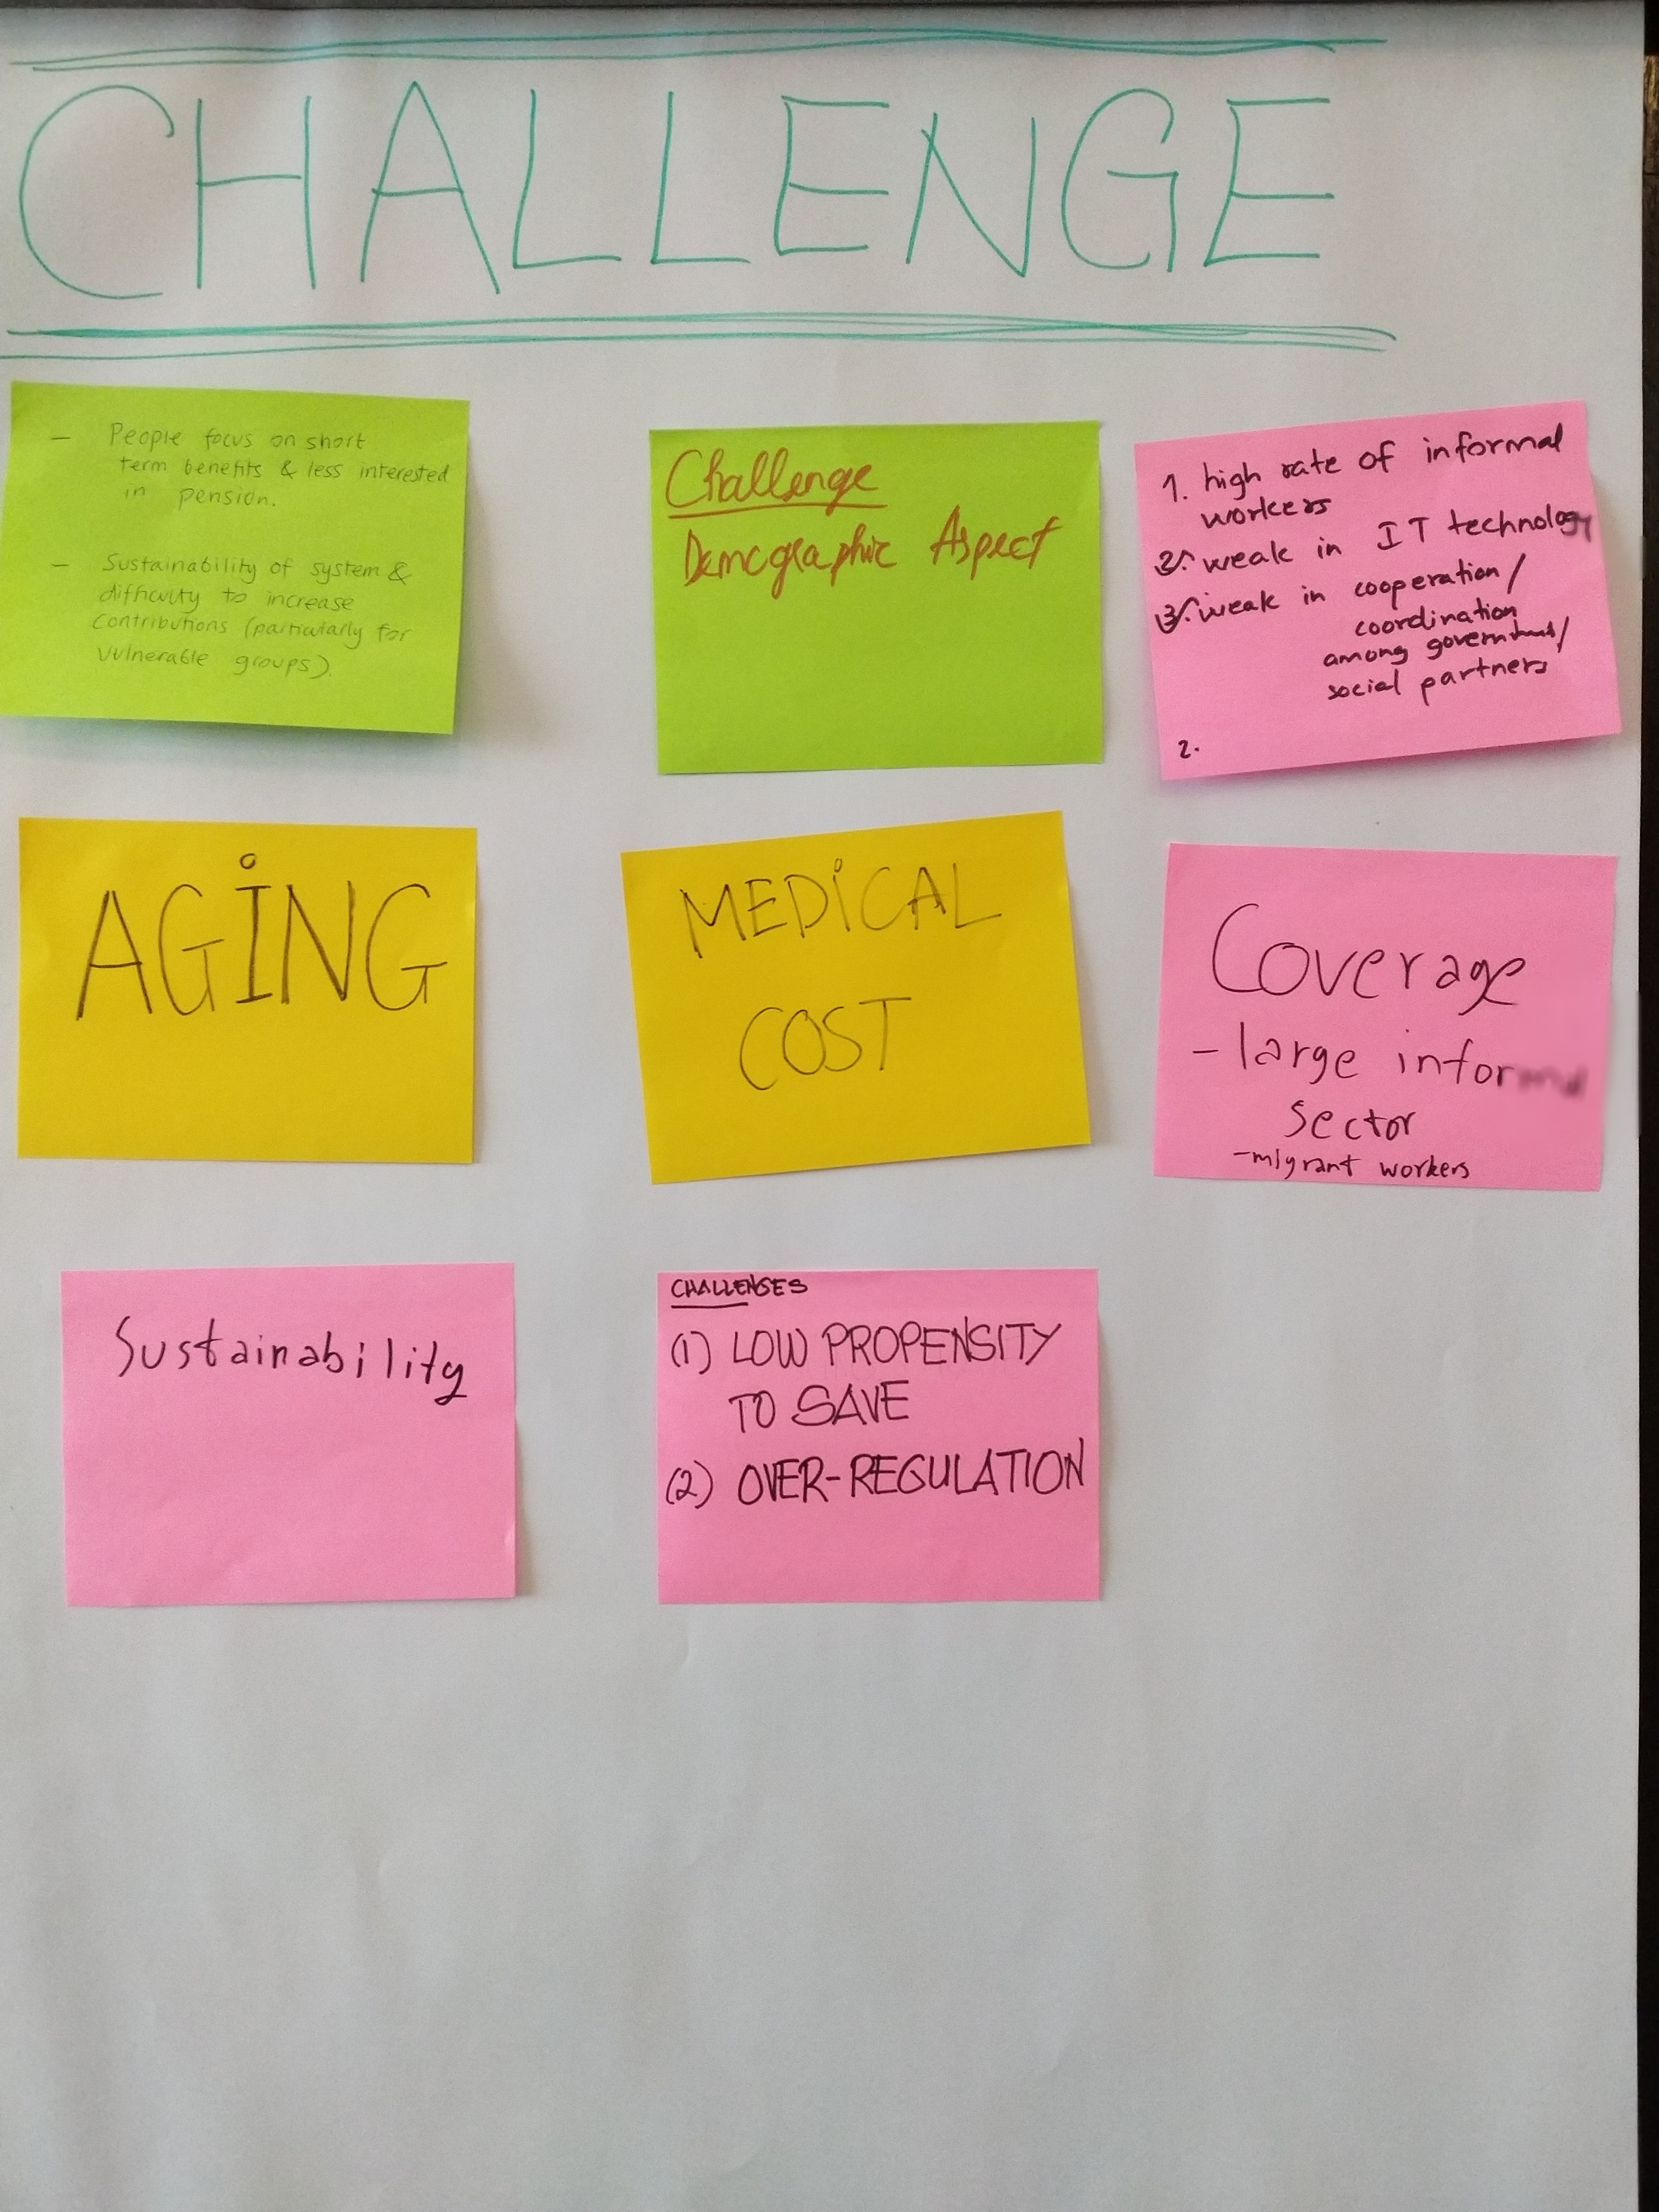 CHALLENGE
- People focus on short
term benefits & less interested
in pension.
- Sustainability of system &
difficulty to increase
contributions (particularly for
vulnerable groups).
Challenge
Demographic Aspect
1. high rate of informal
workers
2. weak in IT technology
3. weak in cooperation/
coordination
among government/
social partners
2.
AGİNG
MEDİCAL
COST
Coverage
- large informal
sector
- migrant workers
Sustainability
CHALLENGES
(1) LOW PROPENSITY
TO SAVE
(2) OVER-REGULATION